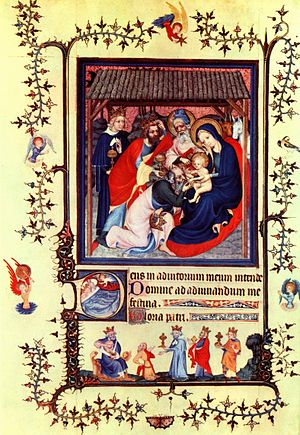 Deus in adiutorium meum intende
Domine ad adiuuandum me
festina.
Gloria patri.